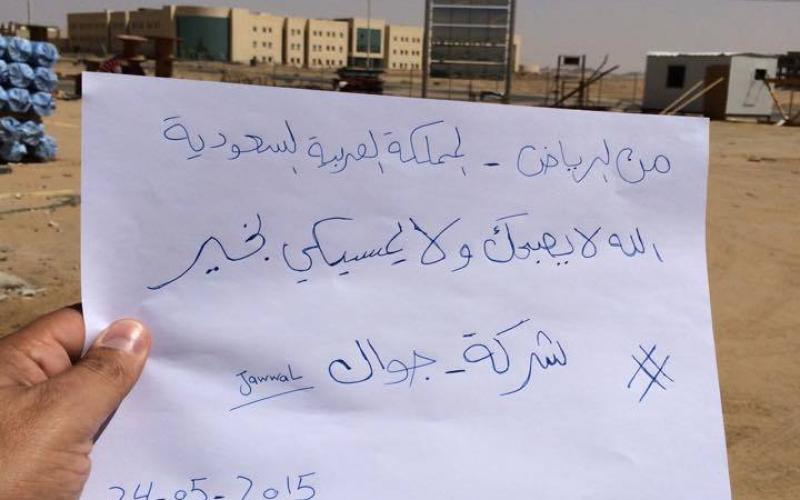 من الرياض - المملكة العربية السعودية
الله لا يصبحك ولا يمسيكي بخير
# شركة - جوال Jawwal
24-05-2015